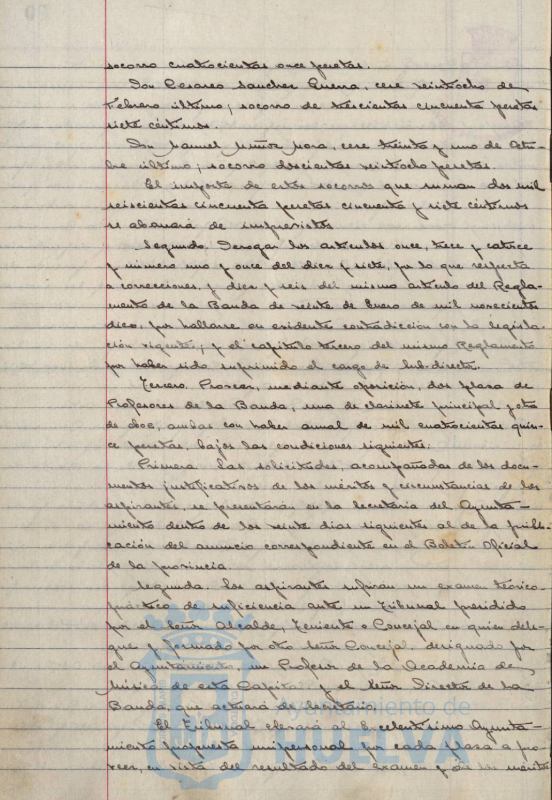 socorro cuatrocientas once pesetas.
Don Cesareo Sanchez Guerra, cese veintiocho de
Febrero último; socorro de trescientas cincuenta pesetas
siete céntimos.
Don Manuel Muñoz Mora, cese treinta y uno de Octu-
bre último; socorro doscientas veintiocho pesetas.
El importe de estos socorros que suman dos mil
seiscientas cincuenta pesetas cincuenta y siete céntimos
se abonará de imprevistos
Segundo. Derogar los artículos once, trece y catorce
y número uno y once del diez y siete, por lo que respecta
a correcciones, y diez y seis del mismo artículo del Regla-
mento de la Banda de veinte de Enero de mil novecientos
doce, por hallarse en evidente contradicción con la legisla-
ción vigente; y el capítulo tercero del mismo Reglamento
por haber sido suprimido el cargo de Sub-director.
Tercero. Proveer, mediante oposición, dos plazas de
Profesores de la Banda, una de clarinete principal y otra
de oboe, ambas con haber anual de mil cuatrocientas quin-
ce pesetas, bajo las condiciones siguientes:
Primera. Las solicitudes, acompañadas de los docu-
mentos justificativos de los méritos y circunstancias de los
aspirantes, se presentarán en la Secretaría del Ayunta-
miento dentro de los veinte días siguientes al de la publi-
cación del anuncio correspondiente en el Boletín Oficial
de la provincia.
Segunda. Los aspirantes sufrirán un examen teórico-
práctico de suficiencia ante un Tribunal presidido
por el Señor Alcalde, Teniente o Concejal en quien dele-
gue y formado por otro Señor Concejal, designado por
el Ayuntamiento, un Profesor de la Academia de
Música de esta Capital y el Señor Director de la
Banda, que actuará de Secretario.
El Tribunal elevará al Excelentísimo Ayunta-
miento propuesta unipersonal por cada plaza a pro-
veer, en vista del resultado del examen y de los méritos
Ayuntamiento de
HUELVA